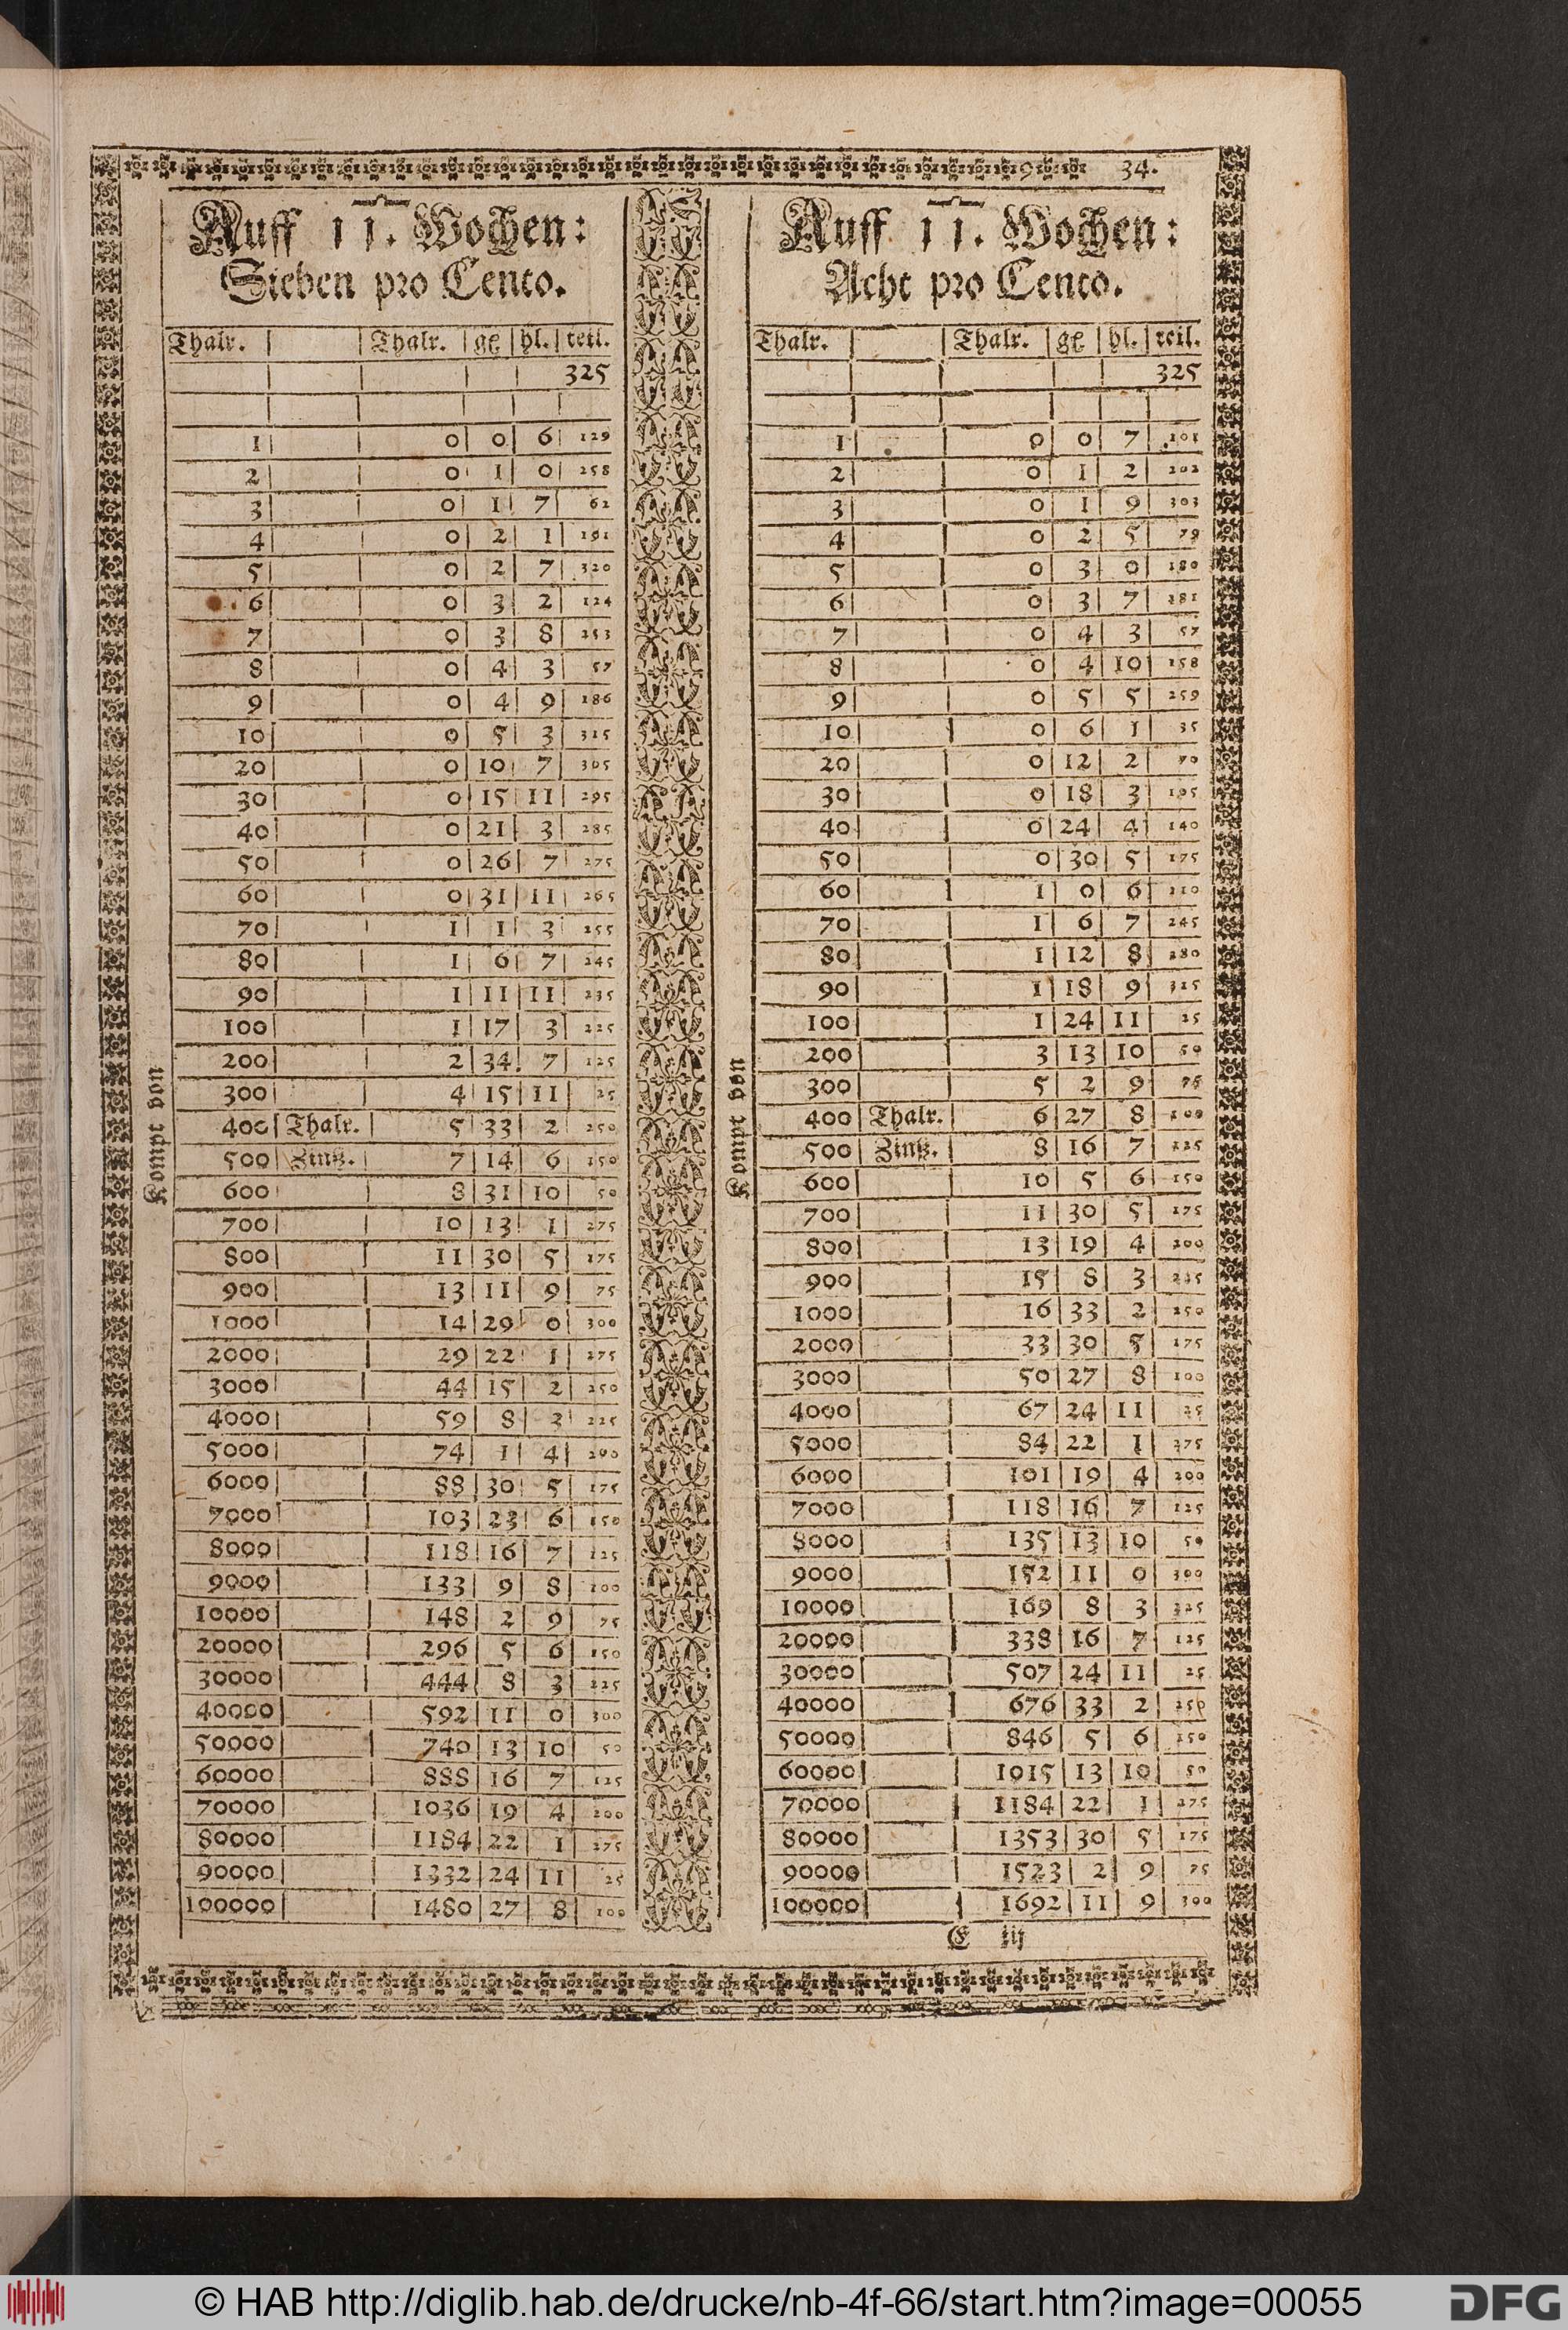 34.
Auff 11. Wochen:
Sieben pro Cento.
Thalr. Thalr. gℓ hl. teil.
325
1 0 0 6 129
2 0 1 0 258
3 0 1 7 62
4 0 2 1 191
5 0 2 7 320
6 0 3 2 124
7 0 3 8 253
8 0 4 3 57
9 0 4 9 186
10 0 5 3 315
20 0 10 7 305
30 0 15 11 295
40 0 21 3 285
50 0 26 7 275
60 0 31 11 265
70 1 1 3 255
80 1 6 7 245
90 1 11 11 235
100 1 17 3 225
200 2 34 7 125
300 4 15 11 25
400 Thalr. 5 33 2 250
500 Zinß. 7 14 6 150
600 8 31 10 50
700 10 13 1 275
800 11 30 5 175
900 13 11 9 75
1000 14 29 0 300
2000 29 22 1 275
3000 44 15 2 250
4000 59 8 3 225
5000 74 1 4 200
6000 88 30 5 175
7000 103 23 6 150
8000 118 16 7 125
9000 133 9 8 100
10000 148 2 9 75
20000 296 5 6 150
30000 444 8 3 225
40000 592 11 0 300
50000 740 13 10 50
60000 888 16 7 125
70000 1036 19 4 200
80000 1184 22 1 275
90000 1332 24 11 25
100000 1480 27 8 100
Kompt von
Auff 11. Wochen:
Acht pro Cento.
Thalr. Thalr. gℓ hl. teil.
325
1 0 0 7 101
2 0 1 2 202
3 0 1 9 303
4 0 2 5 79
5 0 3 0 180
6 0 3 7 281
7 0 4 3 57
8 0 4 10 158
9 0 5 5 259
10 0 6 1 35
20 0 12 2 70
30 0 18 3 105
40 0 24 4 140
50 0 30 5 175
60 1 0 6 210
70 1 6 7 245
80 1 12 8 280
90 1 18 9 315
100 1 24 11 25
200 3 13 10 50
300 5 2 9 75
400 Thalr. 6 27 8 100
500 Zinß. 8 16 7 125
600 10 5 6 150
700 11 30 5 175
800 13 19 4 200
900 15 8 3 225
1000 16 33 2 250
2000 33 30 5 175
3000 50 27 8 100
4000 67 24 11 25
5000 84 22 1 275
6000 101 19 4 200
7000 118 16 7 125
8000 135 13 10 50
9000 152 11 0 300
10000 169 8 3 225
20000 338 16 7 125
30000 507 24 11 25
40000 676 33 2 250
50000 846 5 6 150
60000 1015 13 10 50
70000 1184 22 1 275
80000 1353 30 5 175
90000 1523 2 9 75
100000 1692 11 9 300
Kompt von
E iij
© HAB http://diglib.hab.de/drucke/nb-4f-66/start.htm?image=00055
DFG